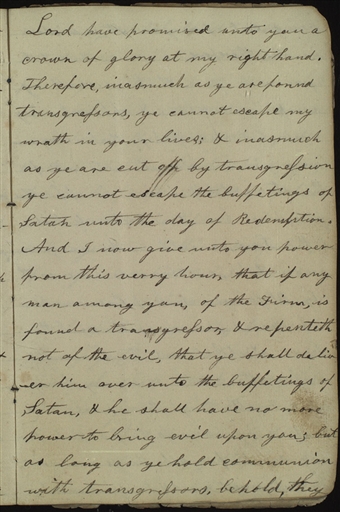 Lord have promised unto you a
crown of glory at my right hand.
Therefore, inasmuch as ye are found
transgressors, ye cannot escape my
wrath in your lives; & inasmuch
as ye are cut off by transgression
ye cannot escape the buffetings of
Satan unto the day of Redemption.
And I now give unto you power
from this verry hour, that if any
man among you, of the Firm, is
found a transgressor, & repenteth
not of the evil, that ye shall deliv-
er him over unto the buffetings of
Satan, & he shall have no more
power to bring evil upon you; but
as long as ye hold communion
with transgressors, behold, they